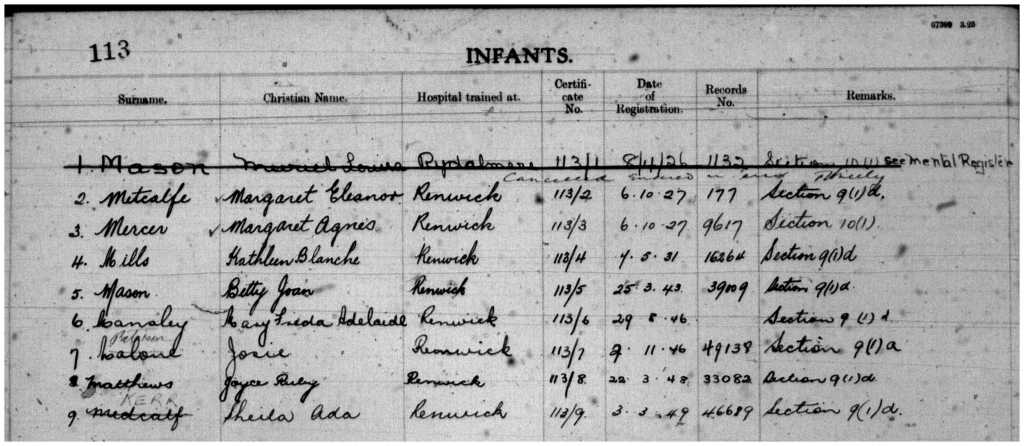 67399 3.25
113
INFANTS.
Surname. Christian Name. Hospital trained at. Certifi-cate No. Date of Registration. Records No. Remarks.
1. Mason Muriel Louisa Rydalmere 113/1 8/11/26 1132 Section 10(1) see Mental Register
Cancelled entered in error
2. Metcalfe Margaret Eleanor Renwick 113/2 6.10.27 177 Section 9(1)d.
3. Mercer Margaret Agnes Renwick 113/3 6.10.27 9617 Section 10(1).
4. Mills Kathleen Blanche Renwick 113/4 7.5.31 16264 Section 9(1)d
5. Mason Betty Joan Renwick 113/5 25.3.43 39009 Section 9(1)d.
6. Mansley Mary Freda Adelaide Renwick 113/6 29 8.46 Section 9(1)d
7. Malone Josie Renwick 113/7 2.11.46 49138 Section 9(1)a
8. Matthews Joyce Renwick 113/8. 22.3.48 33082 Section 9(1)d
KERR
9. Medcalf Sheila Ada Renwick 113/9. 3.3.49 46689 Section 9(1)d.